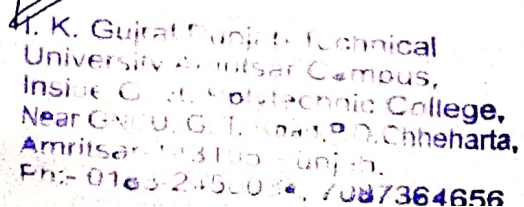 I. K. Gujral Punjab Technical
University Amritsar Campus,
Inside Govt. Polytechnic College,
Near G.T. Road, P.O. Chheharta,
Amritsar Punjab.
Ph:- 7087364656